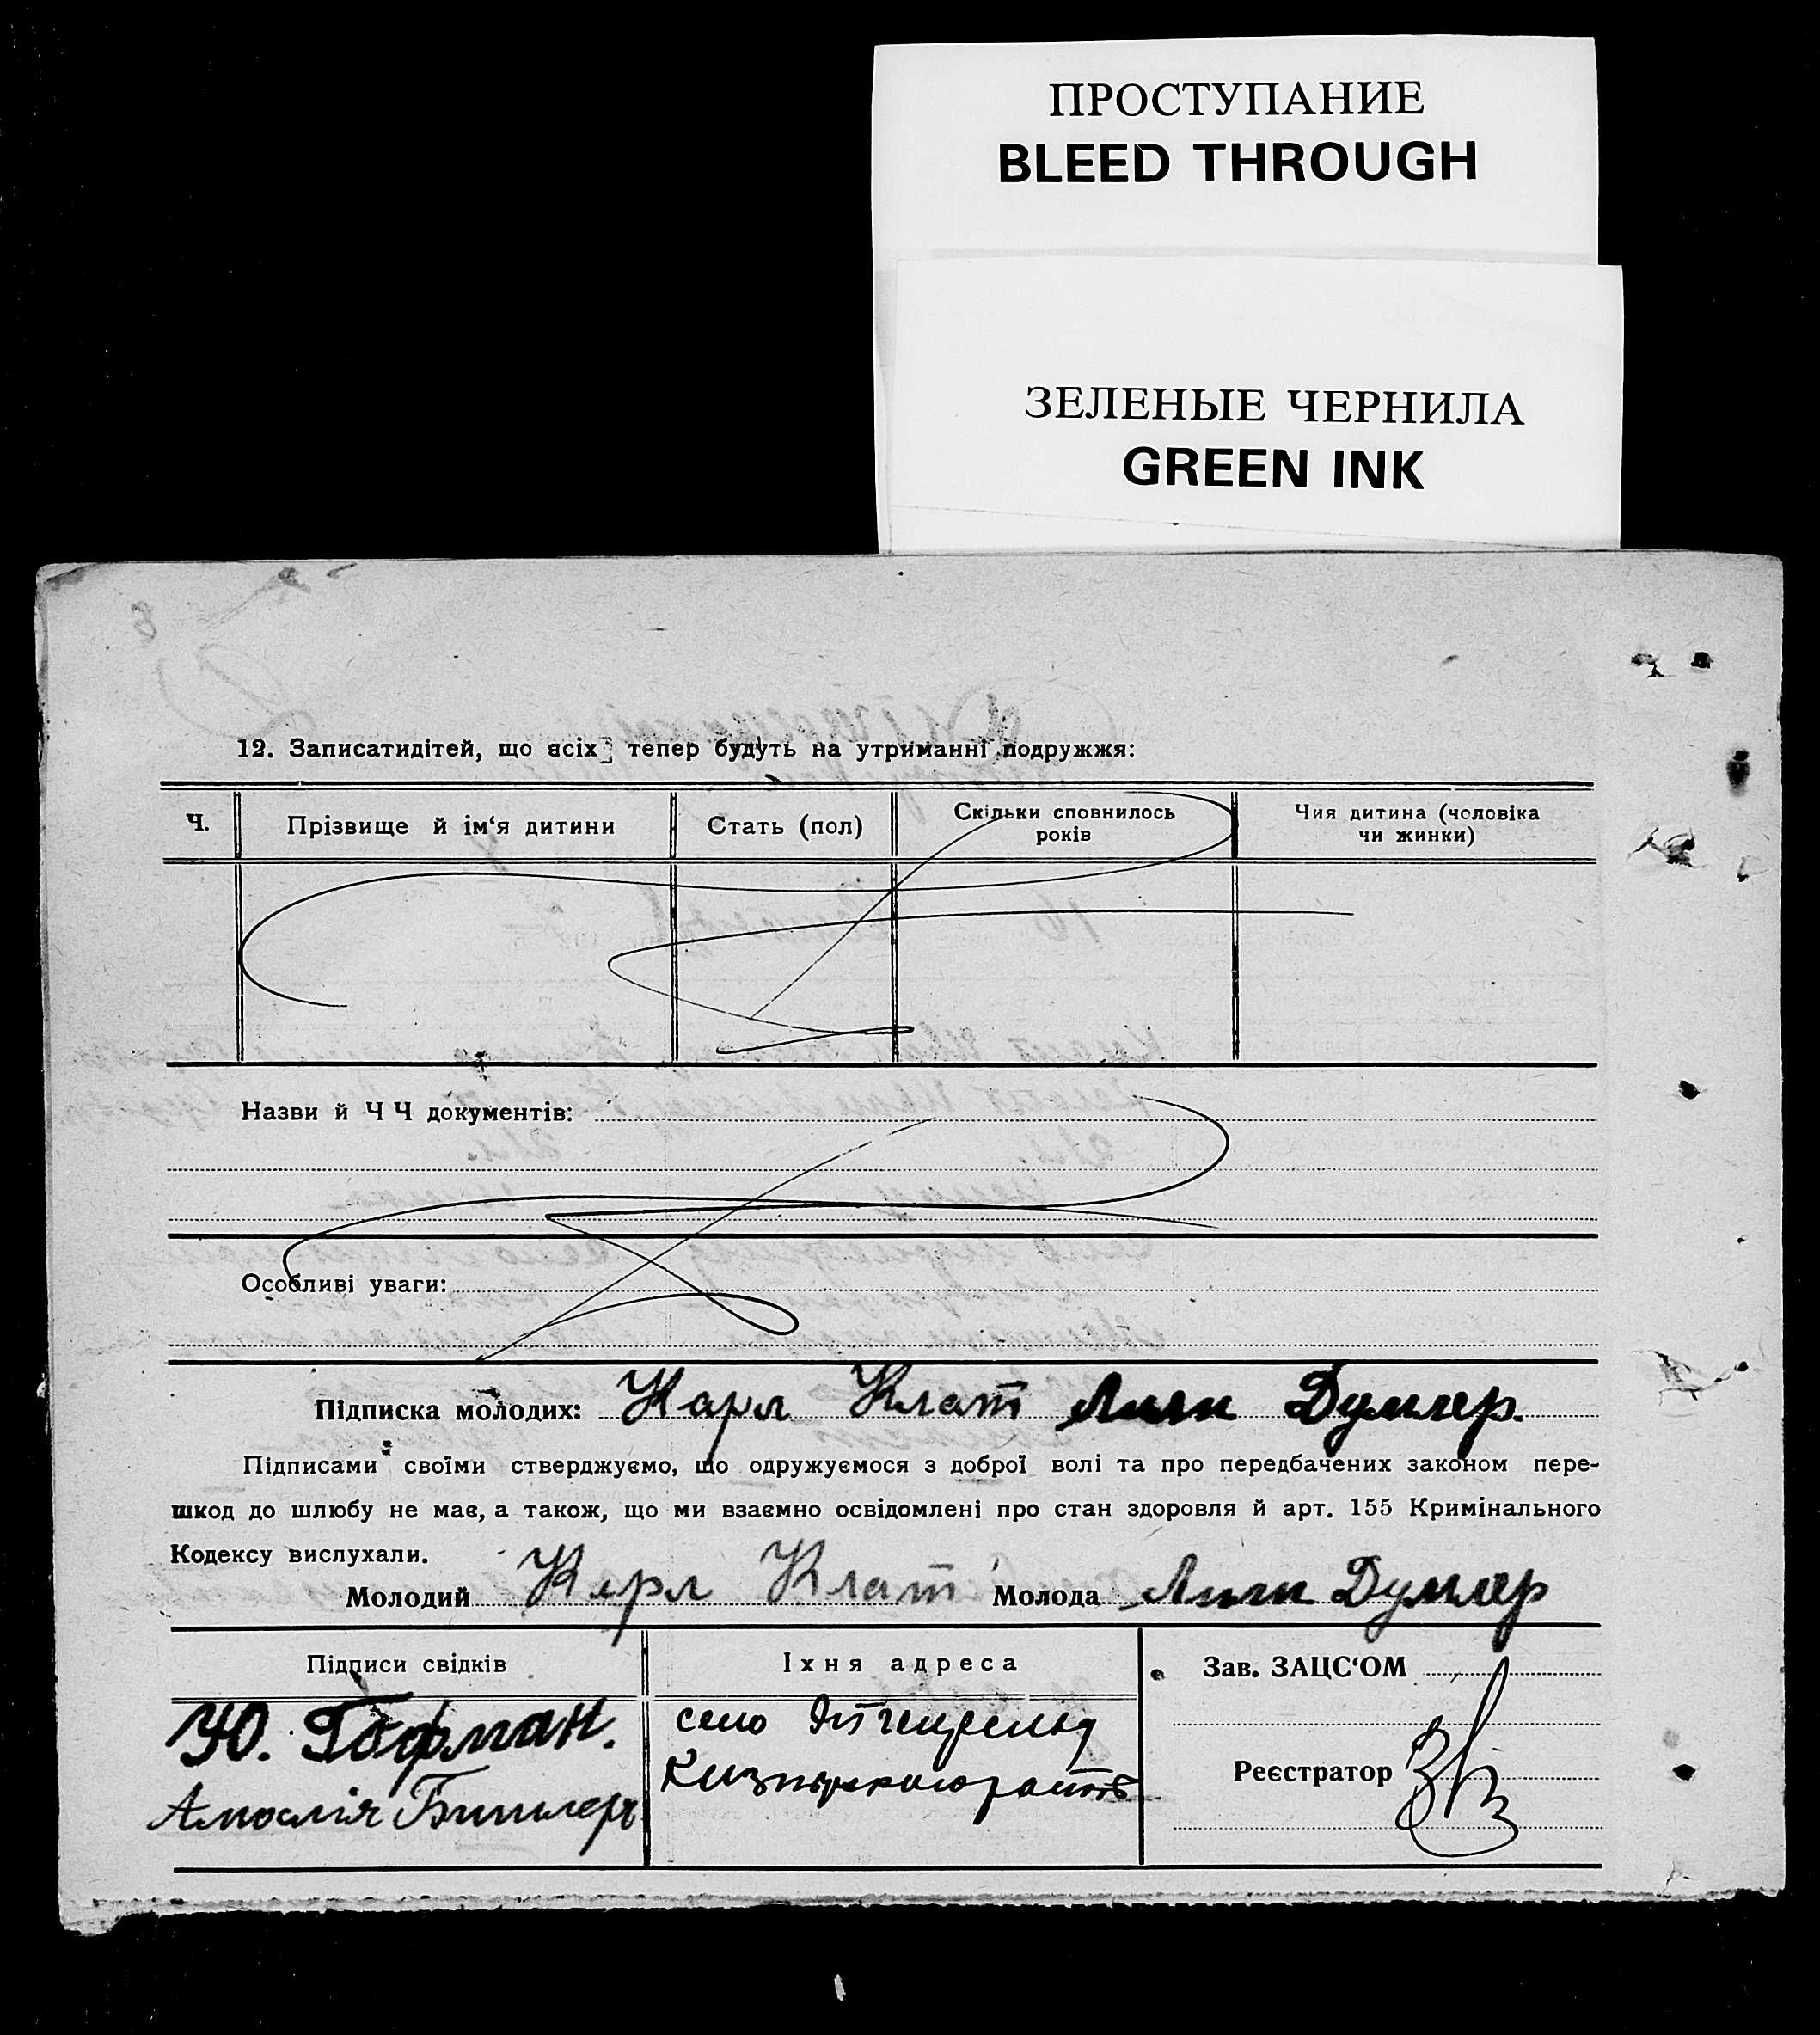 ПРОСТУПАНИЕ
BLEED THROUGH
ЗЕЛЕНЫЕ ЧЕРНИЛА
GREEN INK
12. Записатидітей, що всіх тепер будуть на утриманні подружжя:
Ч. Прізвище й ім‘я дитини Стать (пол) Скільки сповнилось років Чия дитина (чоловіка чи жинки)
Назви й Ч Ч документів:
Особливі уваги:
Підписка молодих: Карл Клат Думлер.
Підписами своїми стверджуємо, що одружуємося з доброї волі та про передбачених законом пере-
шкод до шлюбу не має, а також, що ми взаємно освідомлені про стан здоровля й арт. 155 Кримінального
Кодексу вислухали.
Молодий Карл Клат Молода Думлер
Підписи свідків Їхня адреса Зав. ЗАЦС‘ОМ
Ю. Гофман. село
Амоелія
Реєстратор